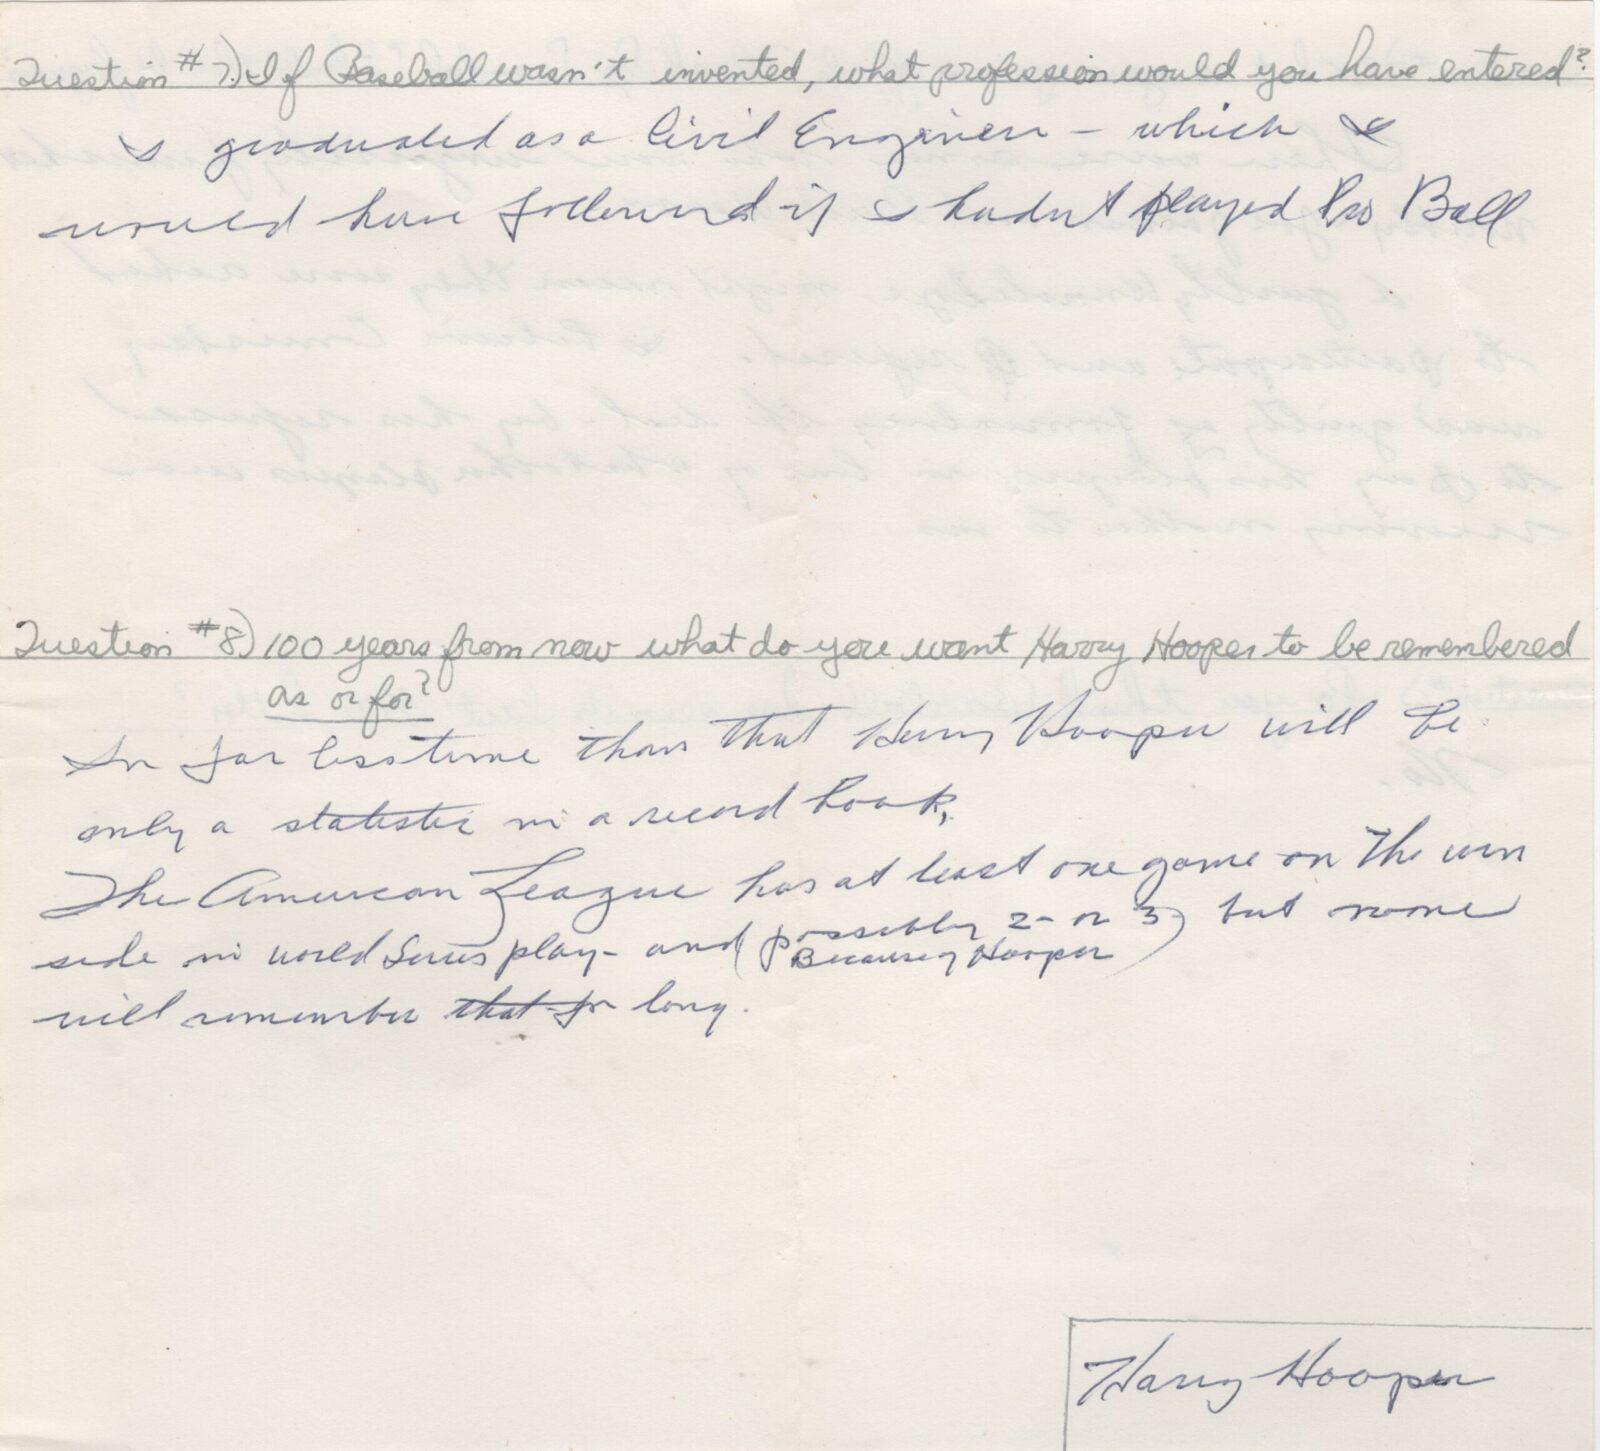 Question #7.) If Baseball wasn't invented, what profession would you have entered?
I graduated as a Civil Engineer – which I
would have followed if I hadn't played Pro Ball
Question #8) 100 years from now what do you want Harry Hooper to be remembered
as or for?
In far less time than that Harry Hooper will be
only a statistic in a record book.
The American League has at least one game on the win
side in world Series play – and (possibly 2 – or 3) but none
Because of Hooper
will remember that for long.
Harry Hooper